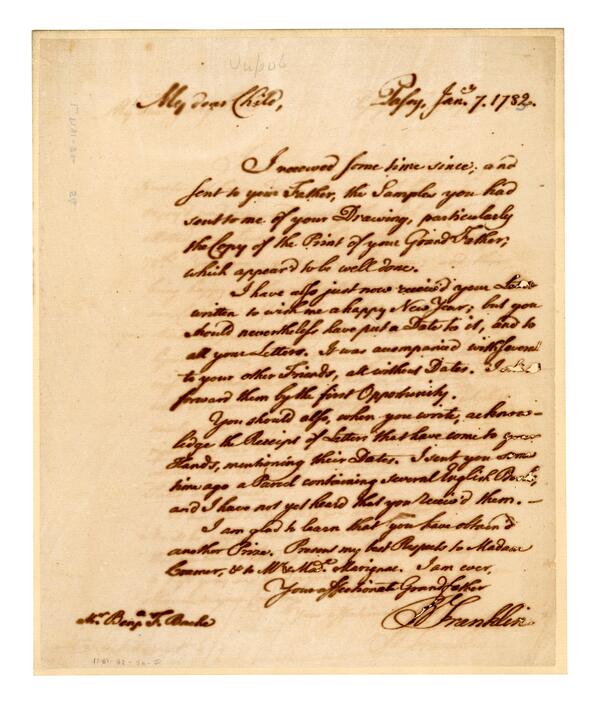 Unpub
My dear Child,
Passy, Jan.y 7. 1782.
I received some time since, and
sent to your Father, the Samples you had
sent to me of your Drawing, particularly
the Copy of the Print of your Grand Father,
which appear'd to be well done.
I have also just now receiv'd your
written to wish me a happy New Year; but you
should nevertheless have put a Date to it, and to
all your Letters. It was accompanied with several
to your other Friends, all without Dates. I
forward them by the first Opportunity.
You should also, when you write, acknow-
ledge the Receipt of Letters that have come to your
Hands, mentioning their Dates. I sent you some
time ago a Parcel containing several English Books,
and I have not yet heard that you receiv'd them. —
I am glad to learn that you have obtain'd
another Prize. Present my best Respects to Madam
Cramer, & to Mr. & Mad.e Marignac. I am ever,
Your affectionate Grandfather
B Franklin
Mr. Benj.a F. Bache